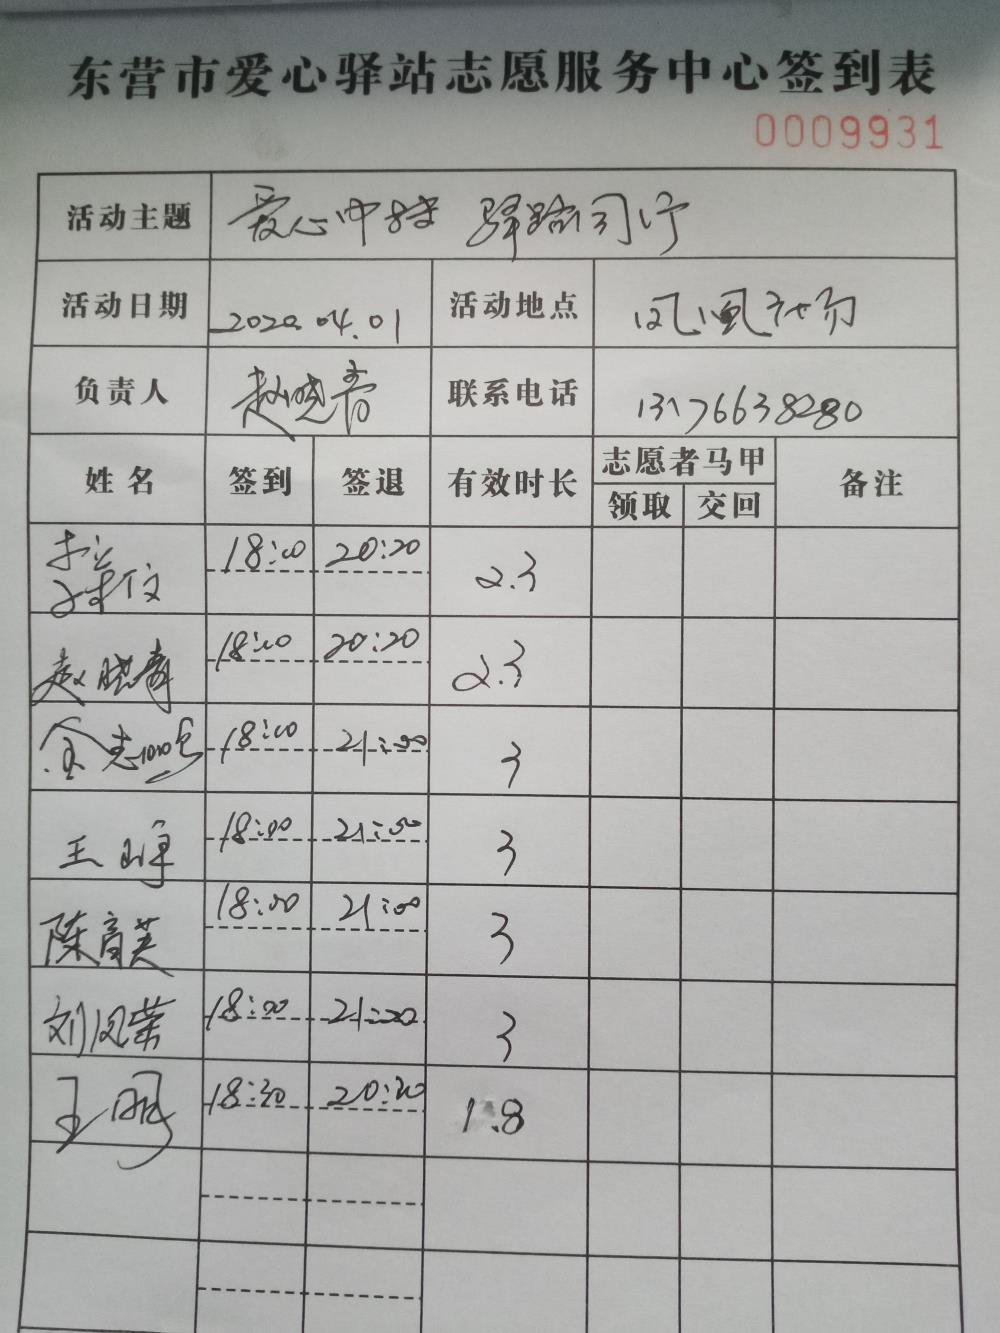 东营市爱心驿站志愿服务中心签到表
0009931
活动主题 爱心中转 驿路同行
活动日期 2020.04.01 活动地点 凤凰社
负责人 赵晓青 联系电话 13176638280
姓名 签到 签退 有效时长 志愿者马甲 备注
领取 交回
18:00 20:20 2.3
赵晓青 18:00 20:20 2.3
金志 18:00 21:00 3
王晖 18:00 21:00 3
陈育芙 18:00 21:00 3
刘凤荣 18:00 21:00 3
王鹏 18:30 20:20 1.8